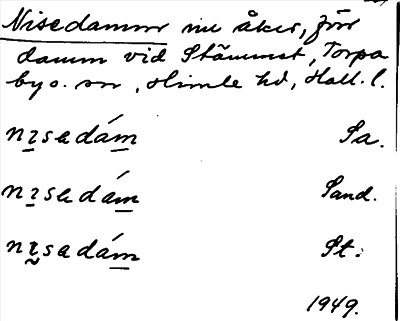 Nisedamm nu åker, förr
damm vid Stämmet, Torpa
by o. sn, Himle hd, Hall. l.
nɪsadám Sa.
nɪsadám Sand.
nɪsadám St.
1949.